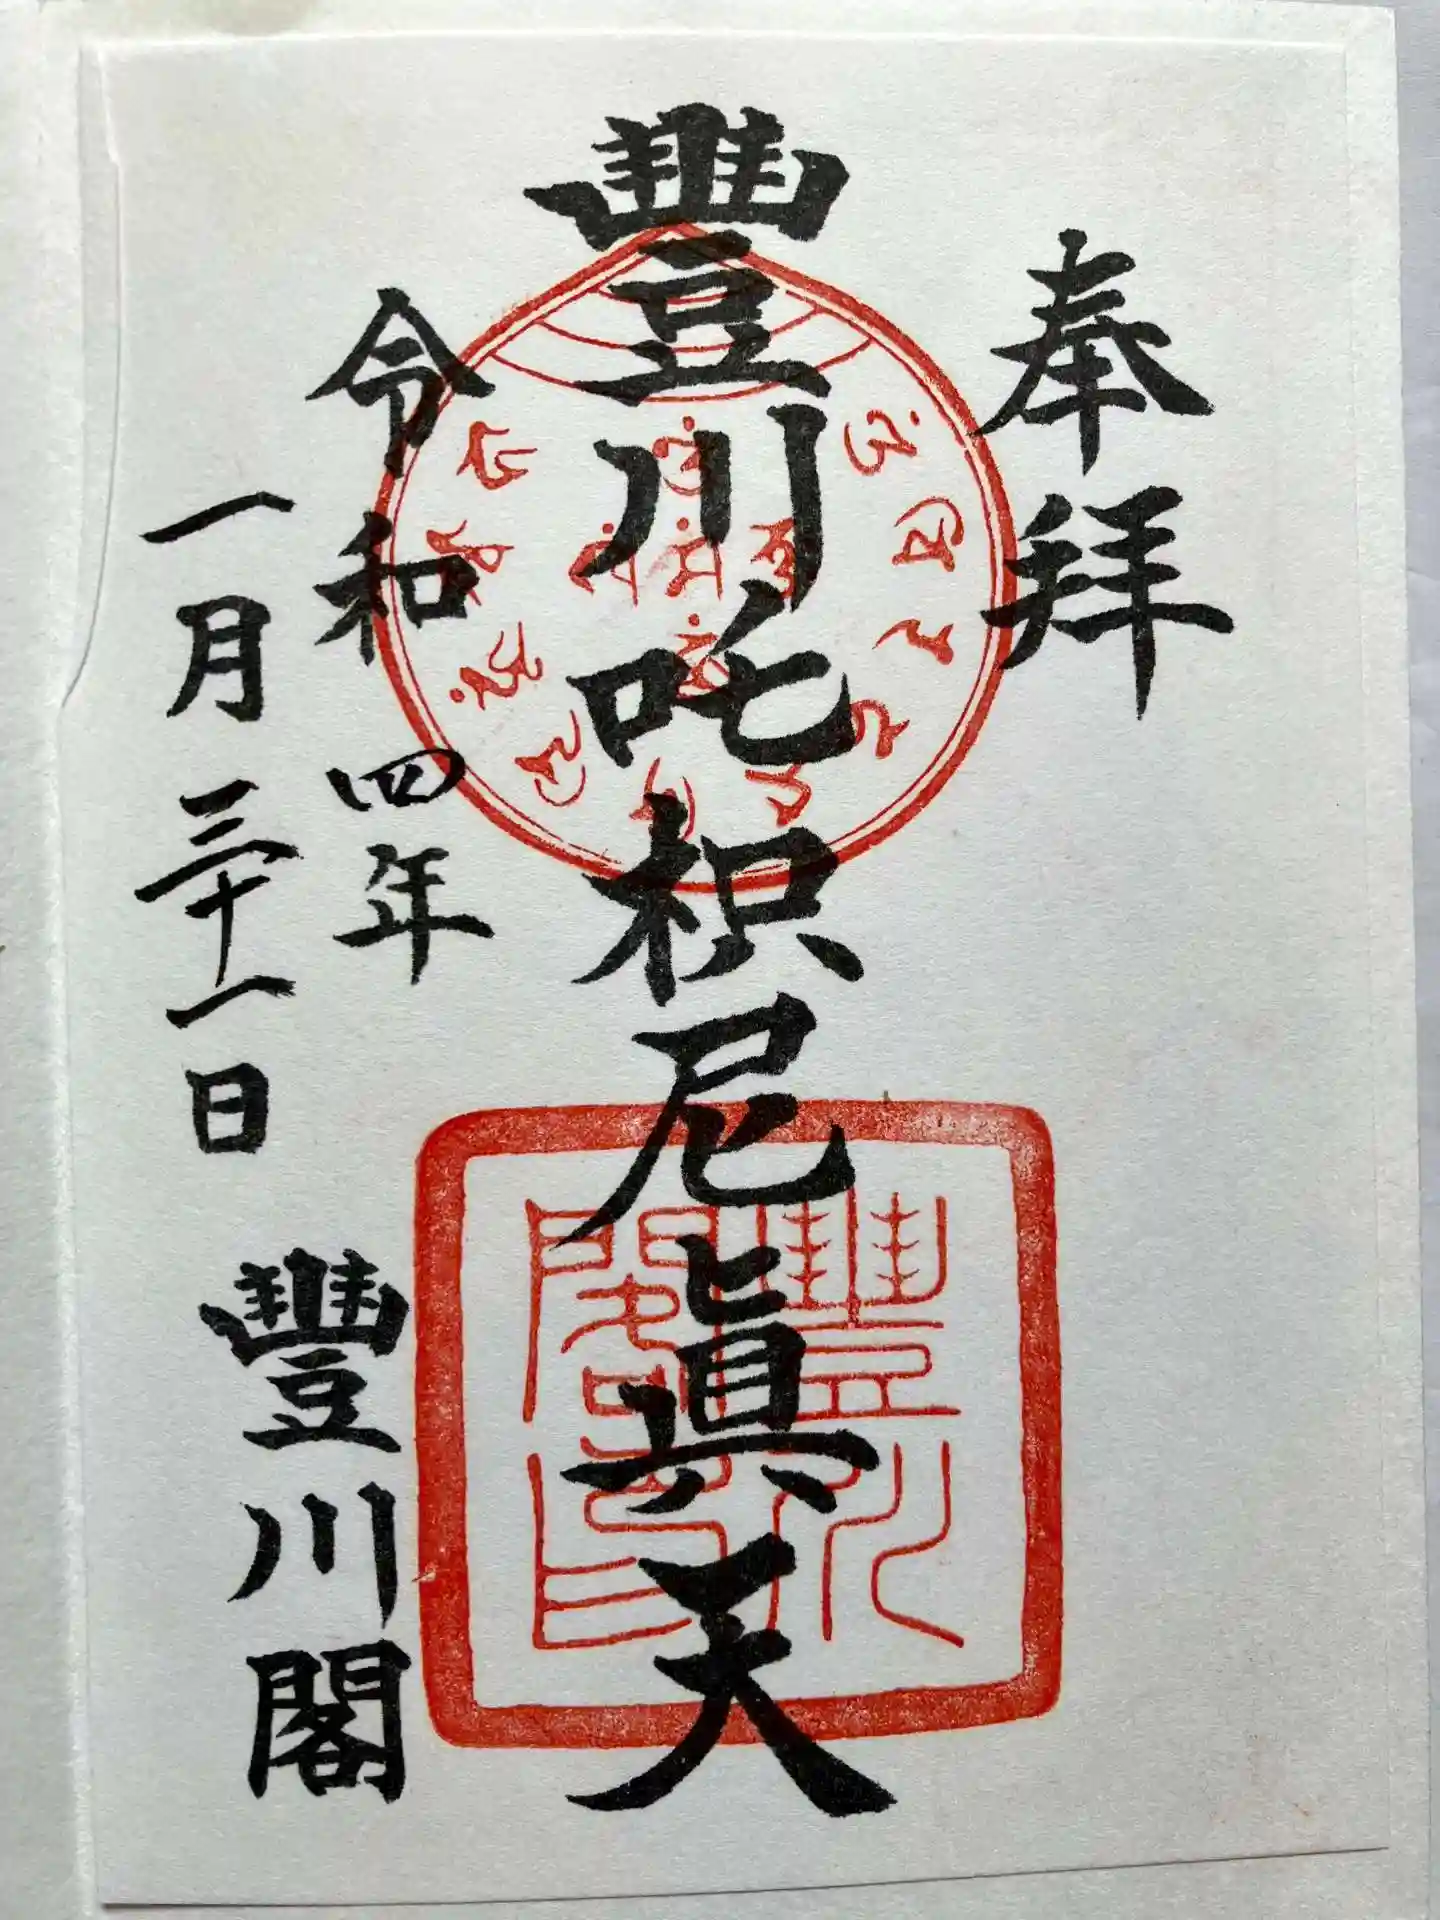 奉拜
豐川吒枳尼眞天
令和四年
一月三十一日
豐川閣
豐川
閣印